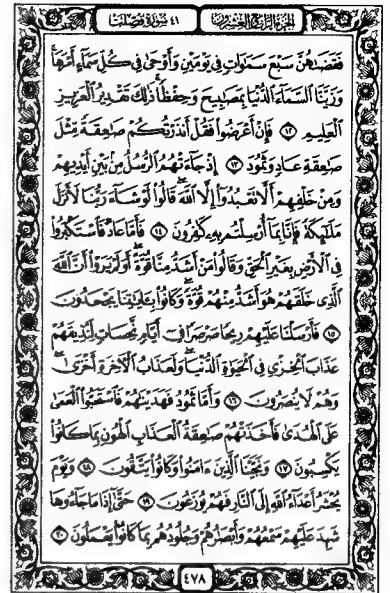 الجزء الرابع والعشرون ٤١ سورة فصلت
فَقَضَىٰهُنَّ سَبْعَ سَمَٰوَاتٍ فِي يَوْمَيْنِ وَأَوْحَىٰ فِي كُلِّ سَمَآءٍ أَمْرَهَا ۚ
وَزَيَّنَّا ٱلسَّمَآءَ ٱلدُّنْيَا بِمَصَٰبِيحَ وَحِفْظًا ۚ ذَٰلِكَ تَقْدِيرُ ٱلْعَزِيزِ
ٱلْعَلِيمِ ١٢ فَإِنْ أَعْرَضُوا۟ فَقُلْ أَنذَرْتُكُمْ صَٰعِقَةً مِّثْلَ
صَٰعِقَةِ عَادٍ وَثَمُودَ ١٣ إِذْ جَآءَتْهُمُ ٱلرُّسُلُ مِنۢ بَيْنِ أَيْدِيهِمْ
وَمِنْ خَلْفِهِمْ أَلَّا تَعْبُدُوٓا۟ إِلَّا ٱللَّهَ ۖ قَالُوا۟ لَوْ شَآءَ رَبُّنَا لَأَنزَلَ
مَلَٰٓئِكَةً فَإِنَّا بِمَآ أُرْسِلْتُم بِهِۦ كَٰفِرُونَ ١٤ فَأَمَّا عَادٌ فَٱسْتَكْبَرُوا۟
فِي ٱلْأَرْضِ بِغَيْرِ ٱلْحَقِّ وَقَالُوا۟ مَنْ أَشَدُّ مِنَّا قُوَّةً ۖ أَوَلَمْ يَرَوْا۟ أَنَّ ٱللَّهَ
ٱلَّذِي خَلَقَهُمْ هُوَ أَشَدُّ مِنْهُمْ قُوَّةً ۖ وَكَانُوا۟ بِـَٔايَٰتِنَا يَجْحَدُونَ
١٥ فَأَرْسَلْنَا عَلَيْهِمْ رِيحًا صَرْصَرًا فِيٓ أَيَّامٍ نَّحِسَاتٍ لِّنُذِيقَهُمْ
عَذَابَ ٱلْخِزْيِ فِي ٱلْحَيَوٰةِ ٱلدُّنْيَا ۖ وَلَعَذَابُ ٱلْءَاخِرَةِ أَخْزَىٰ ۖ
وَهُمْ لَا يُنصَرُونَ ١٦ وَأَمَّا ثَمُودُ فَهَدَيْنَٰهُمْ فَٱسْتَحَبُّوا۟ ٱلْعَمَىٰ
عَلَى ٱلْهُدَىٰ فَأَخَذَتْهُمْ صَٰعِقَةُ ٱلْعَذَابِ ٱلْهُونِ بِمَا كَانُوا۟
يَكْسِبُونَ ١٧ وَنَجَّيْنَا ٱلَّذِينَ ءَامَنُوا۟ وَكَانُوا۟ يَتَّقُونَ ١٨ وَيَوْمَ
يُحْشَرُ أَعْدَآءُ ٱللَّهِ إِلَى ٱلنَّارِ فَهُمْ يُوزَعُونَ ١٩ حَتَّىٰٓ إِذَا مَا جَآءُوهَا
شَهِدَ عَلَيْهِمْ سَمْعُهُمْ وَأَبْصَٰرُهُمْ وَجُلُودُهُم بِمَا كَانُوا۟ يَعْمَلُونَ ٢٠
٤٧٨